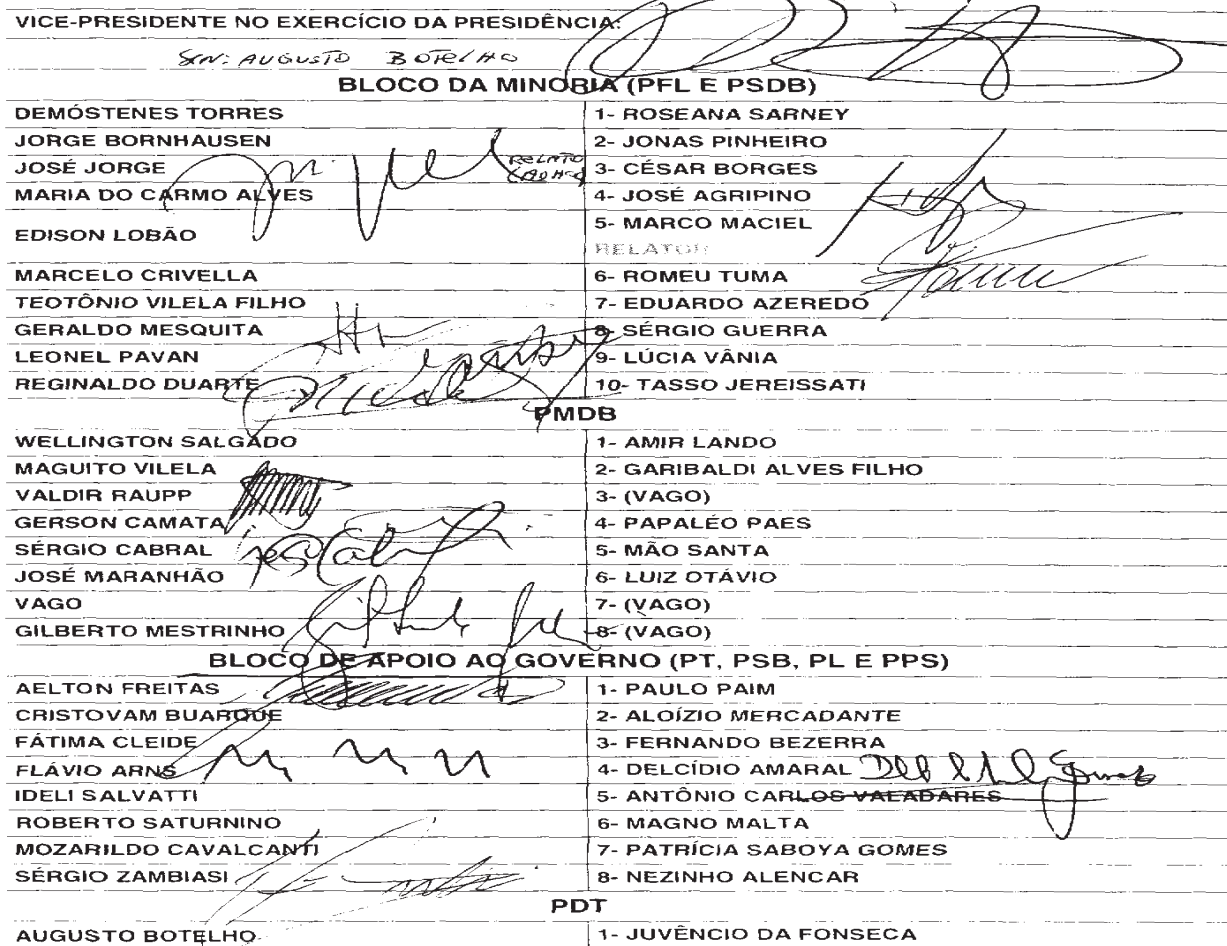 VICE-PRESIDENTE NO EXERCÍCIO DA PRESIDÊNCIA:
SEN: AUGUSTO BOTELHO
BLOCO DA MINORIA (PFL E PSDB)
DEMÓSTENES TORRES 1- ROSEANA SARNEY
JORGE BORNHAUSEN 2- JONAS PINHEIRO
JOSÉ JORGE 3- CÉSAR BORGES
MARIA DO CARMO ALVES 4- JOSÉ AGRIPINO
EDISON LOBÃO 5- MARCO MACIEL
RELATOR:
MARCELO CRIVELLA 6- ROMEU TUMA
TEOTÔNIO VILELA FILHO 7- EDUARDO AZEREDO
GERALDO MESQUITA 8- SÉRGIO GUERRA
LEONEL PAVAN 9- LÚCIA VÂNIA
REGINALDO DUARTE 10- TASSO JEREISSATI
PMDB
WELLINGTON SALGADO 1- AMIR LANDO
MAGUITO VILELA 2- GARIBALDI ALVES FILHO
VALDIR RAUPP 3- (VAGO)
GERSON CAMATA 4- PAPALÉO PAES
SÉRGIO CABRAL 5- MÃO SANTA
JOSÉ MARANHÃO 6- LUIZ OTÁVIO
VAGO 7- (VAGO)
GILBERTO MESTRINHO 8- (VAGO)
BLOCO DE APOIO AO GOVERNO (PT, PSB, PL E PPS)
AELTON FREITAS 1- PAULO PAIM
CRISTOVAM BUARQUE 2- ALOÍZIO MERCADANTE
FÁTIMA CLEIDE 3- FERNANDO BEZERRA
FLÁVIO ARNS 4- DELCÍDIO AMARAL
IDELI SALVATTI 5- ANTÔNIO CARLOS VALADARES
ROBERTO SATURNINO 6- MAGNO MALTA
MOZARILDO CAVALCANTI 7- PATRÍCIA SABOYA GOMES
SÉRGIO ZAMBIASI 8- NEZINHO ALENCAR
PDT
AUGUSTO BOTELHO 1- JUVÊNCIO DA FONSECA